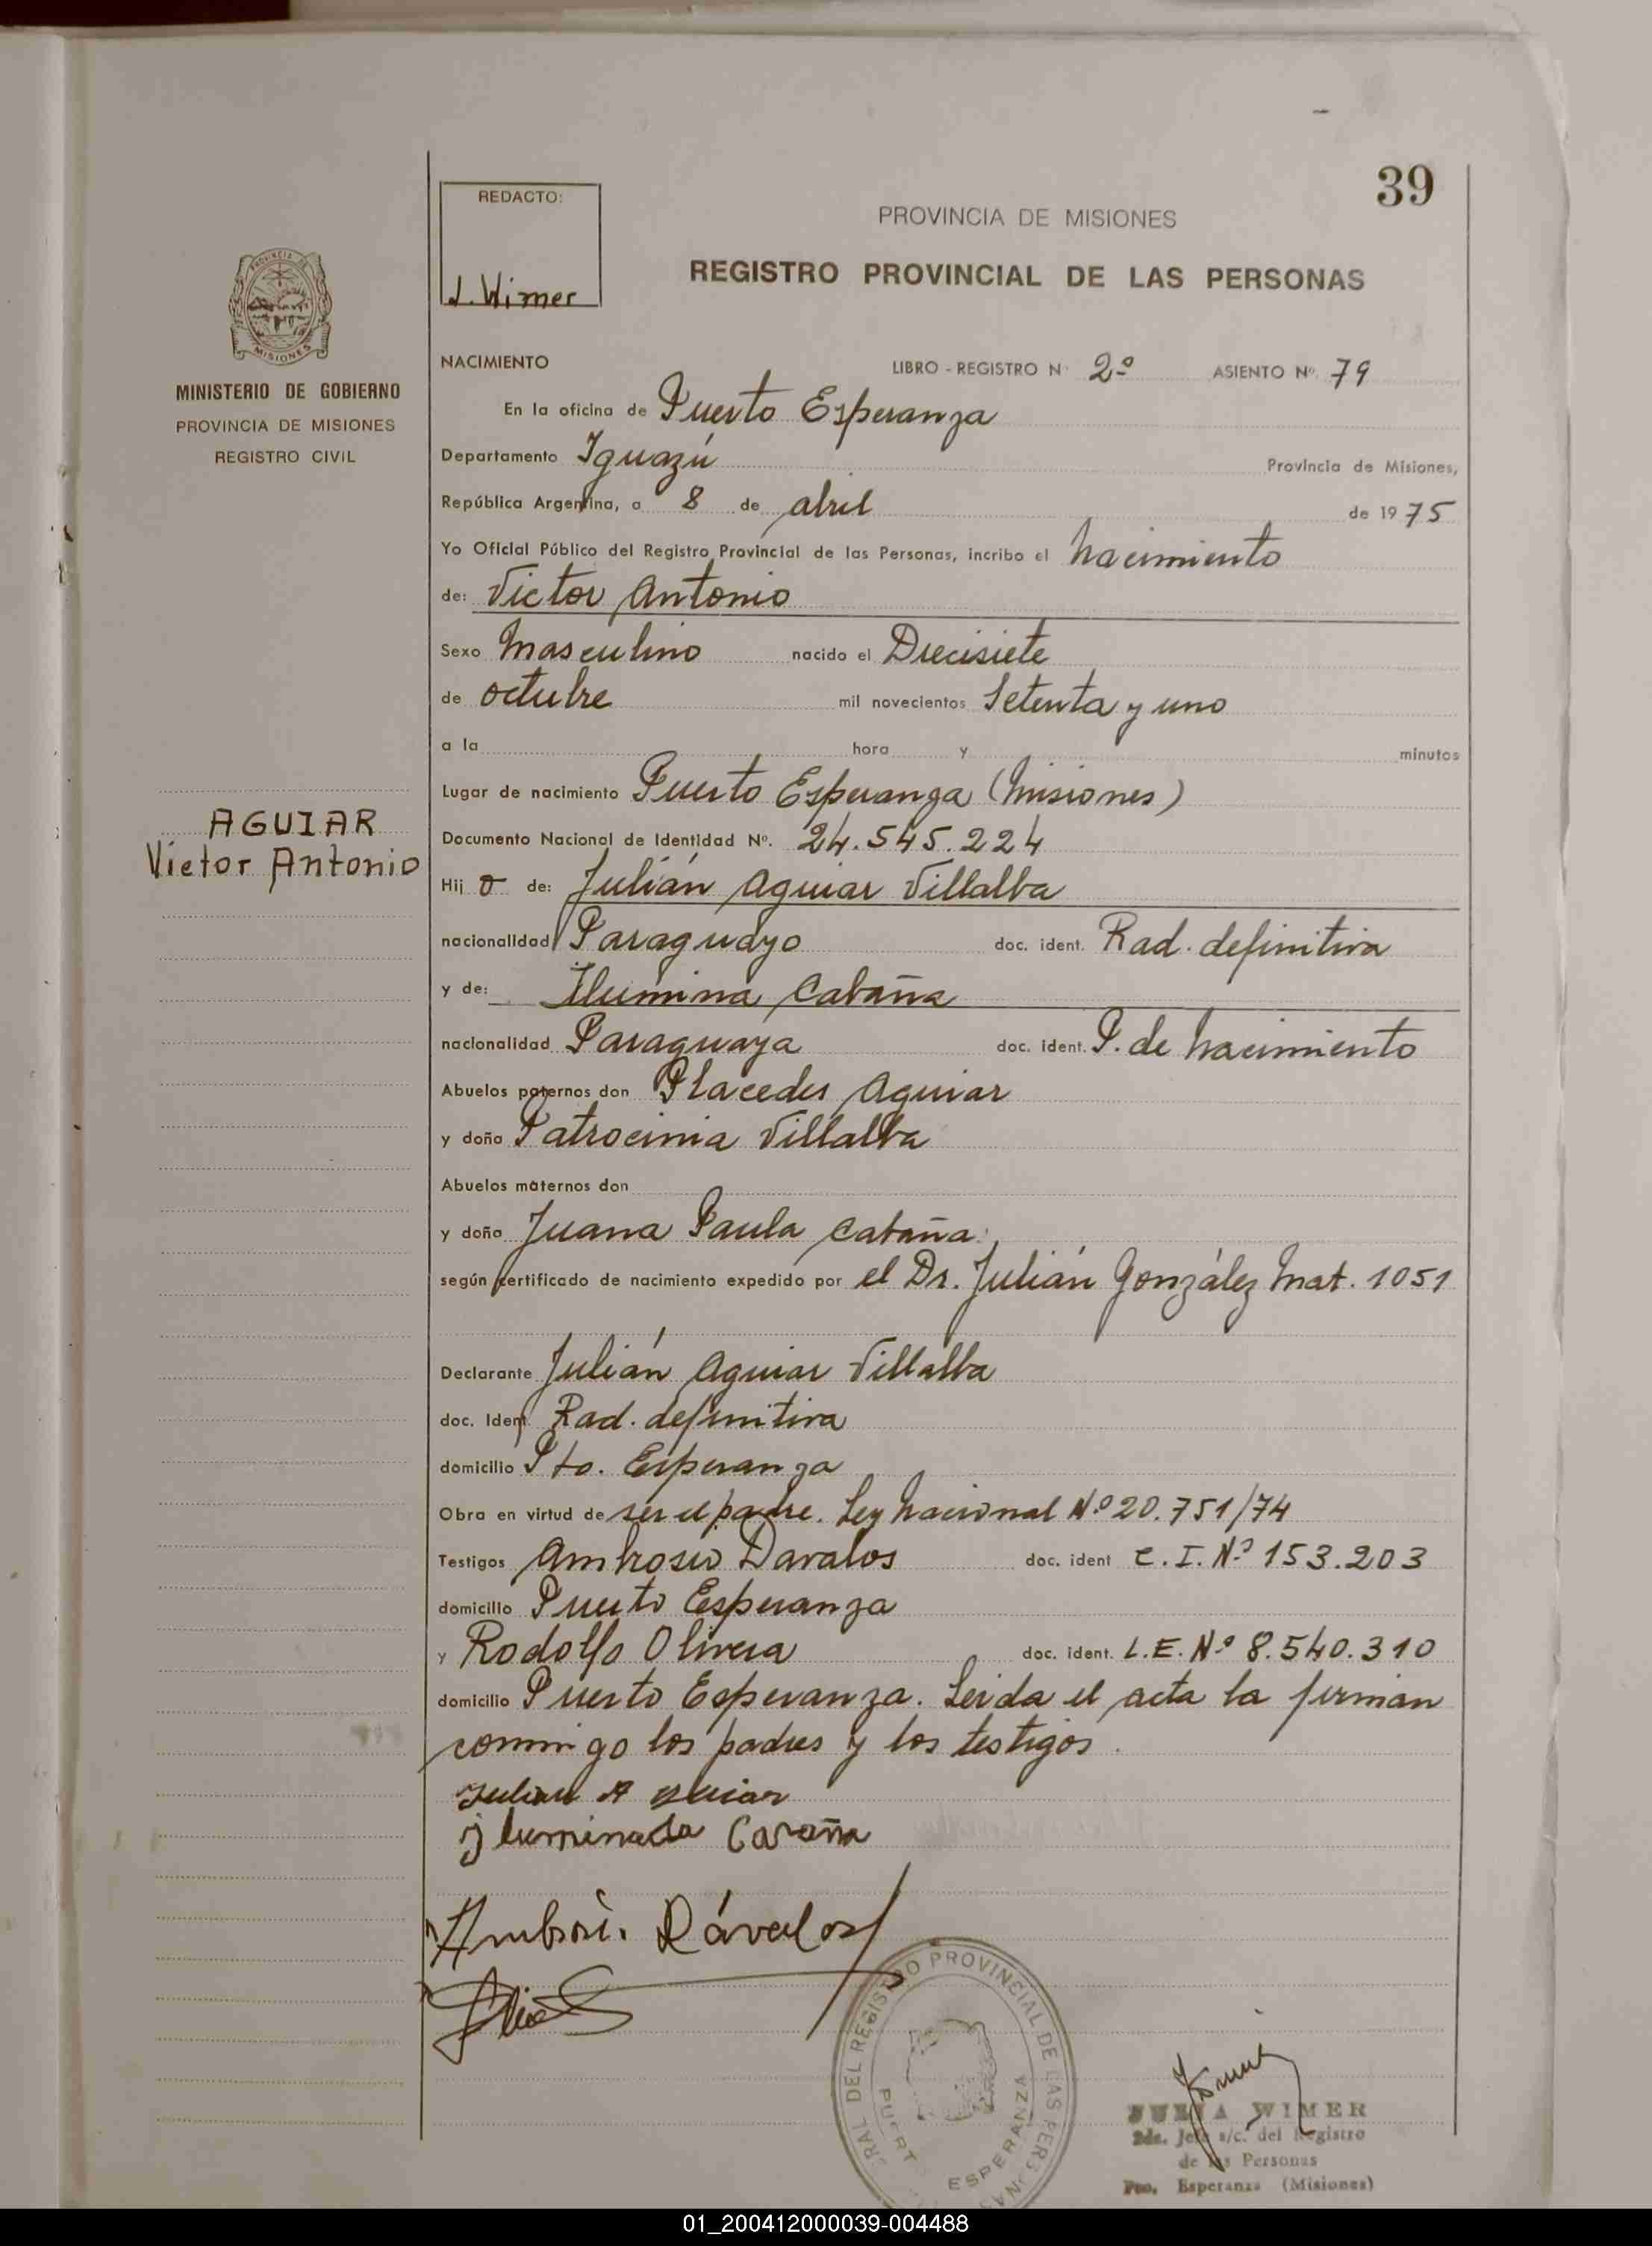 39
REDACTO:
J. Wimer
PROVINCIA DE MISIONES
REGISTRO PROVINCIAL DE LAS PERSONAS
PROVINCIA DE
MISIONES
MINISTERIO DE GOBIERNO
PROVINCIA DE MISIONES
REGISTRO CIVIL
AGUIAR
Victor Antonio
NACIMIENTO LIBRO - REGISTRO N 2º ASIENTO Nº. 79
En la oficina de Puerto Esperanza
Departamento Iguazú Provincia de Misiones,
República Argentina, a 8 de abril de 19 75
Yo Oficial Público del Registro Provincial de las Personas, incribo el nacimiento
de: Victor Antonio
Sexo Masculino nacido el Diecisiete
de octubre mil novecientos Setenta y uno
a la hora y minutos
Lugar de nacimiento Puerto Esperanza (Misiones)
Documento Nacional de Identidad Nº. 24.545.224
Hij o de: Julián Aguiar Villalba
nacionalidad Paraguayo doc. ident. Rad. definitiva
y de: Ilumina Cabaña
nacionalidad Paraguaya doc. ident. P. de nacimiento
Abuelos paternos don Placedes Aguiar
y doña Patrocinia Villalba
Abuelos maternos don
y doña Juana Paula Cabaña
según certificado de nacimiento expedido por el Dr. Julián González Mat. 1051
Declarante Julián Aguiar Villalba
doc. Ident. Rad. definitiva
domicilio Pto. Esperanza
Obra en virtud de ser el padre. Ley Nacional Nº 20.751/74
Testigos Ambrosio Davalos doc. ident C.I. Nº 153.203
domicilio Puerto Esperanza
y Rodolfo Olivera doc. ident. L.E. Nº 8.540.310
domicilio Puerto Esperanza. Leida el acta la firman
conmigo los padres y los testigos.
Julian A guiar
Iluminada Cavaña
Ambrosi. Dávalos
DEL REGISTRO PROVINCIAL DE LAS PERSONAS
PUERTO ESPERANZA
JULIA WIMER
2da. Jefe a/c. del Registro
de las Personas
Pto. Esperanza (Misiones)
01_200412000039-004488